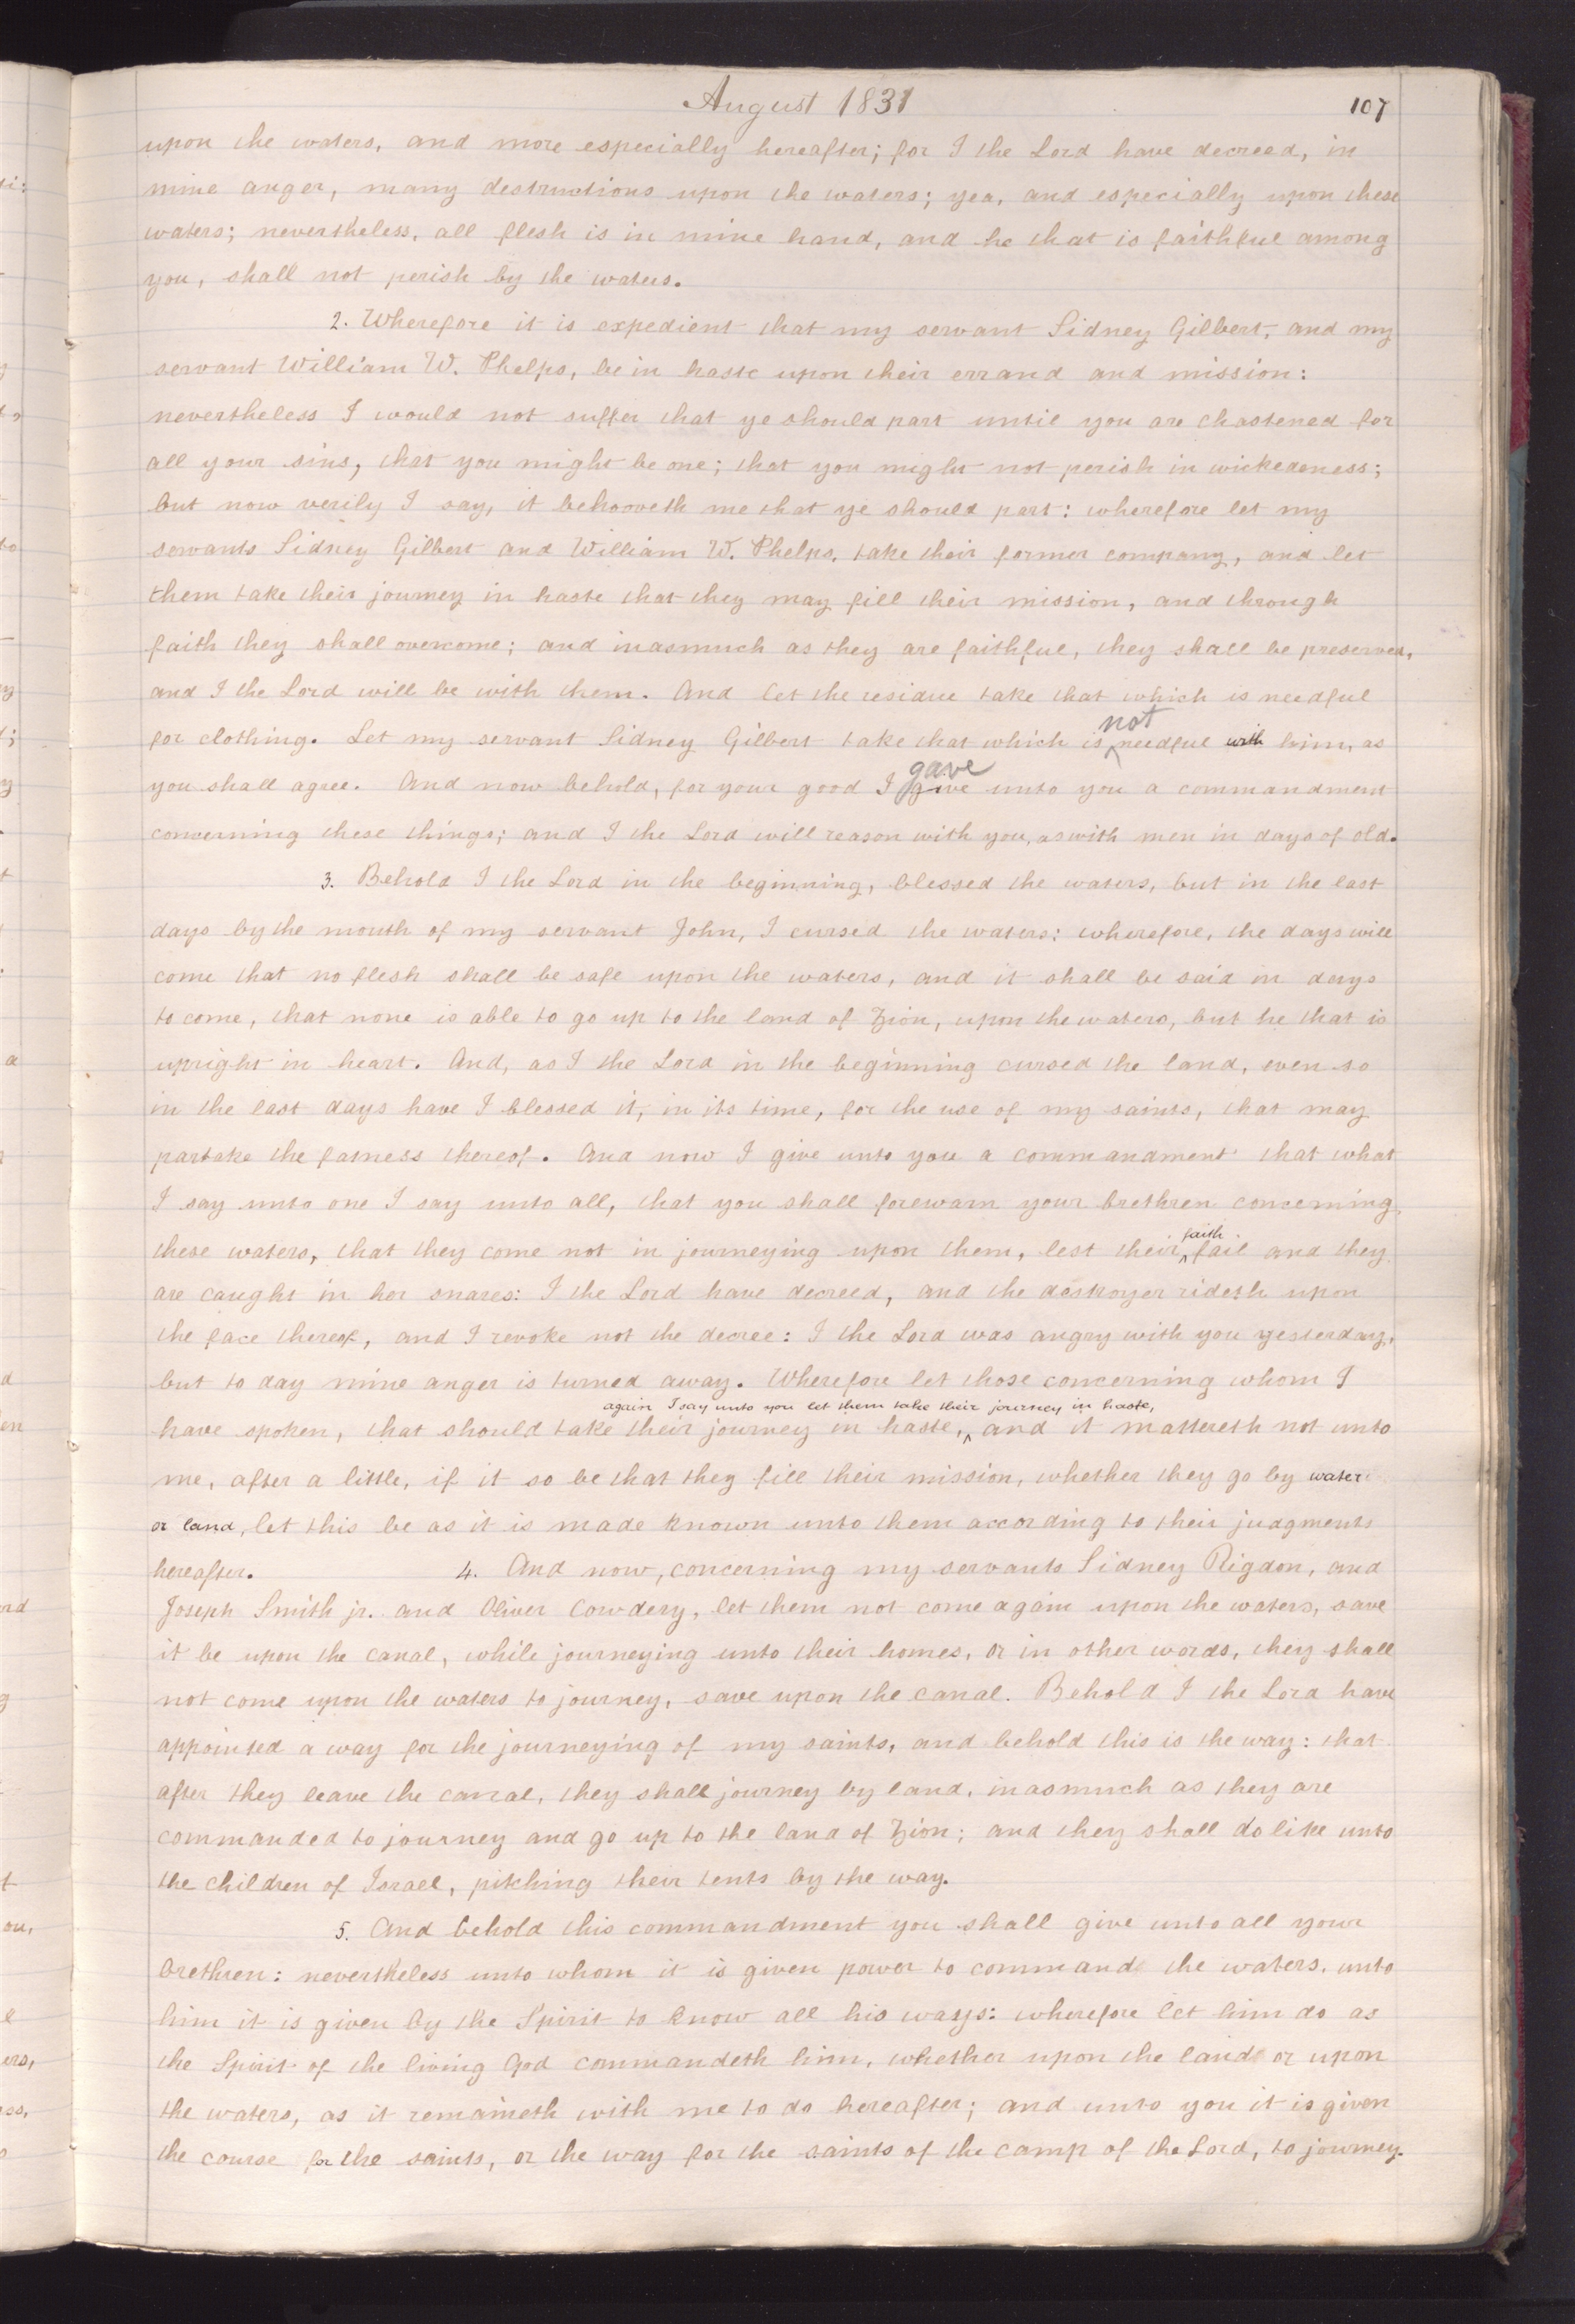 August 1831
107
upon the waters, and more especially hereafter; for I the Lord have decreed, in
mine anger, many destructions upon the waters; yea, and especially upon these
waters; nevertheless, all flesh is in mine hand, and he that is faithful among
you, shall not perish by the waters.
2. Wherefore it is expedient that my servant Sidney Gilbert, and my
servant William W. Phelps, be in haste upon their errand and mission:
nevertheless I would not suffer that ye should part until you are chastened for
all your sins, that you might be one; that you might not perish in wickedeness;
but now verily I say, it behooveth me that ye should part: wherefore let my
servants Sidney Gilbert and William W. Phelps, take their former company, and let
them take their journey in haste that they may fill their mission, and through
faith they shall overcome; and inasmuch as they are faithful, they shall be preserved,
and I the Lord will be with them. And let the residue take that which is needful
not
for clothing. Let my servant Sidney Gilbert take that which is needful with him, as
gave
you shall agree. And now behold, for your good I give unto you a commandment
concerning these things; and I the Lord will reason with you, as with men in days of old.
3. Behold I the Lord in the beginning, blessed the waters, but in the last
days by the mouth of my servant John, I cursed the waters: wherefore, the days will
come that no flesh shall be safe upon the waters, and it shall be said in days
to come, that none is able to go up to the land of Zion, upon the waters, but he that is
upright in heart. And, as I the Lord in the beginning cursed the land, even so
in the last days have I blessed it, in its time, for the use of my saints, that may
partake the fatness thereof. And now I give unto you a commandment that what
I say unto one I say unto all, that you shall forewarn your brethren concerning
these waters, that they come not in journeying upon them, lest their faith fail and they
are caught in her snares: I the Lord have decreed, and the destroyer rideth upon
the face thereof, and I revoke not the decree: I the Lord was angry with you yesterday,
but to day mine anger is turned away. Wherefore let those concerning whom I
again I say unto you let them take their journey in haste,
have spoken, that should take their journey in haste, and it mattereth not unto
me, after a little, if it so be that they fill their mission, whether they go by water
or land, let this be as it is made known unto them according to their judgments
hereafter. 4. And now, concerning my servants Sidney Rigdon, and
Joseph Smith jr. and Oliver Cowdery, let them not come again upon the waters, save
it be upon the canal, while journeying unto their homes, or in other words, they shall
not come upon the waters to journey, save upon the canal. Behold I the Lord have
appointed a way for the journeying of my saints, and behold this is the way: that
after they leave the canal, they shall journey by land, inasmuch as they are
commanded to journey and go up to the land of Zion; and they shall do like unto
the children of Israel, pitching their tents by the way.
5. And behold this commandment you shall give unto all your
brethren: nevertheless unto whom it is given power to command the waters, unto
him it is given by the Spirit to know all his ways: wherefore let him do as
the Spirit of the living God commandeth him, whether upon the land or upon
the waters, as it remaineth with me to do hereafter; and unto you it is given
the course for the saints, or the way for the saints of the camp of the Lord, to journey.